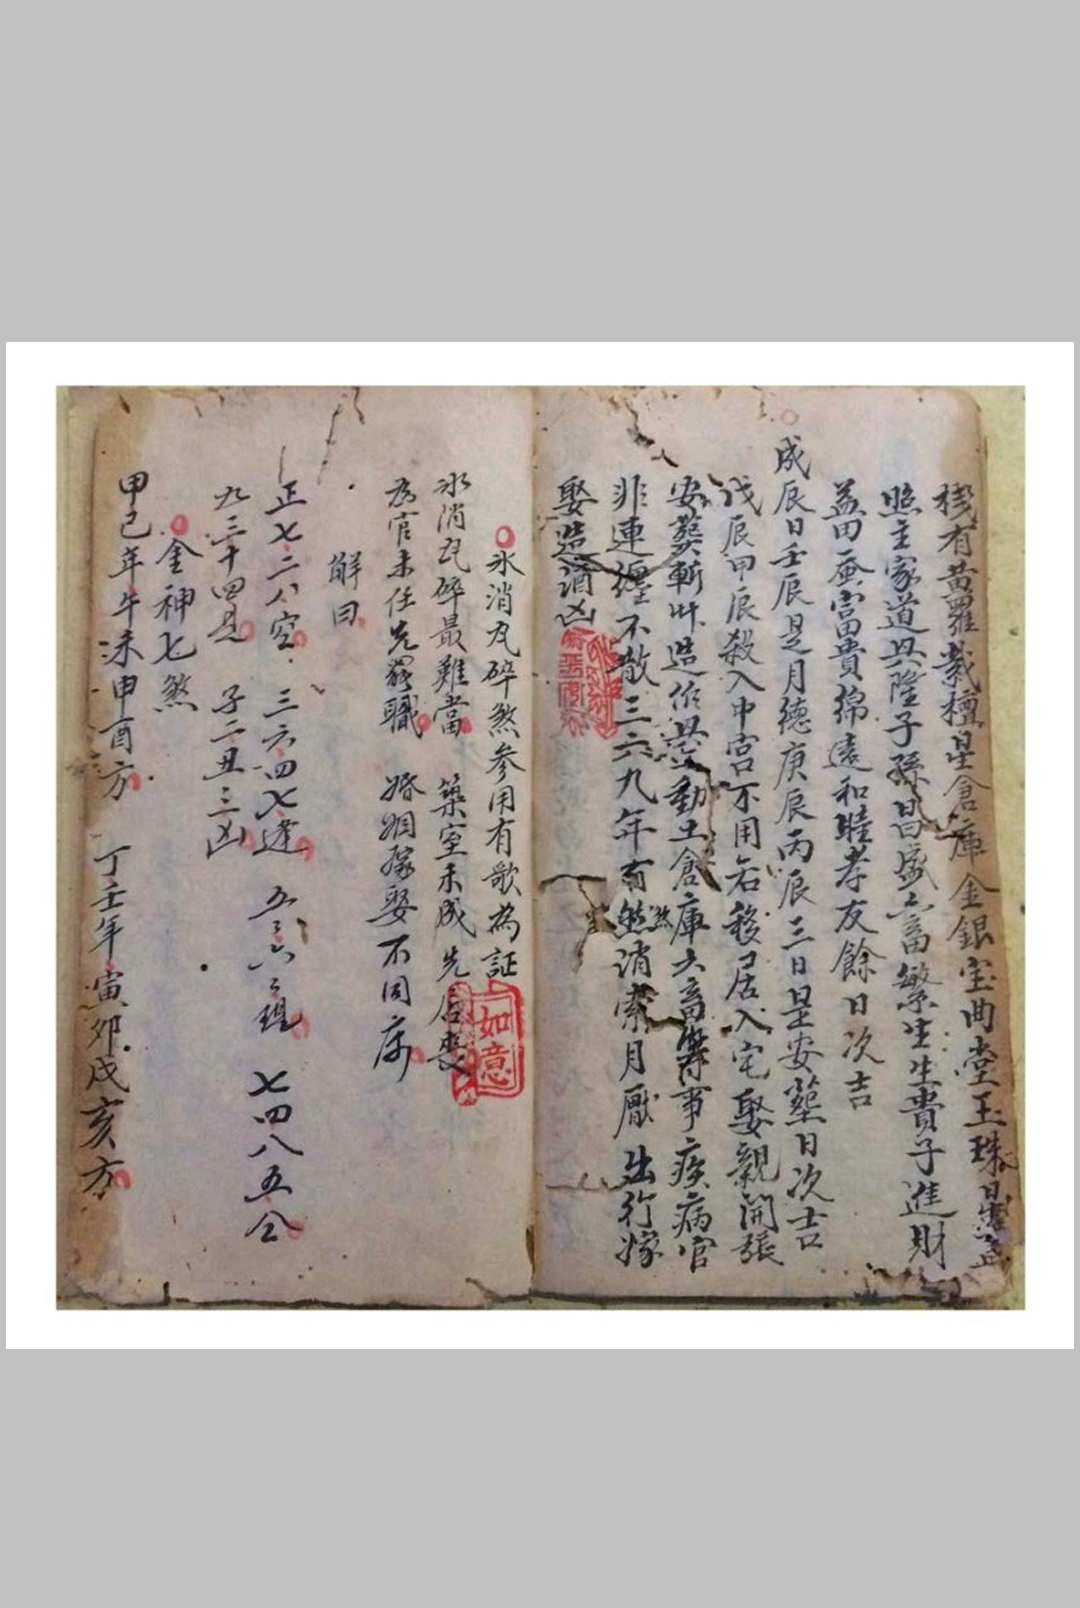 有黃羅紫檀星倉庫金銀宝曲堂玉珠星盖
照主家道興隆子孫日盛六畜繁生生貴子進財
益田蚕富貴綿遠和睦孝友餘日次吉
成辰日壬辰是月德庚辰丙辰三日是安塟日次吉
戊辰甲辰殺入中宮不用若移居入宅娶親開張
安葬斬艸造作興工動土倉庫六畜等事疾病官
非連纏不散三六九年有煞消索月厭出行嫁
娶造酒凶
氷消瓦碎煞参用有歌為証
氷消瓦碎最難當 築室未成先居喪
為官未任先罷職 婚姻嫁娶不同床
解曰
正七二八空 三六四七逢 五三六二現 七四八五仝
九三十四是 子二丑三凶
金神七煞
甲己年午未申酉方 丁壬年寅卯戌亥方
如意